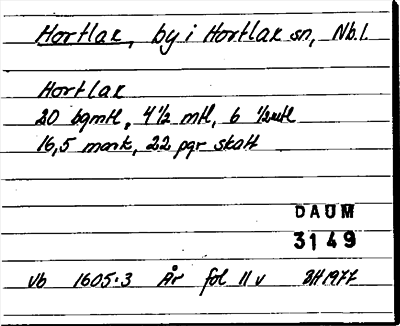 Hortlax, by i Hortlax sn, Nb.l.
Hortlax
20 bgmtl, 4 1/2 mtl, 6 1/2mtl
16,5 mark, 22 pgr skatt
DAUM
3149
Vb 1605:3 År fol 11 v BH 1977